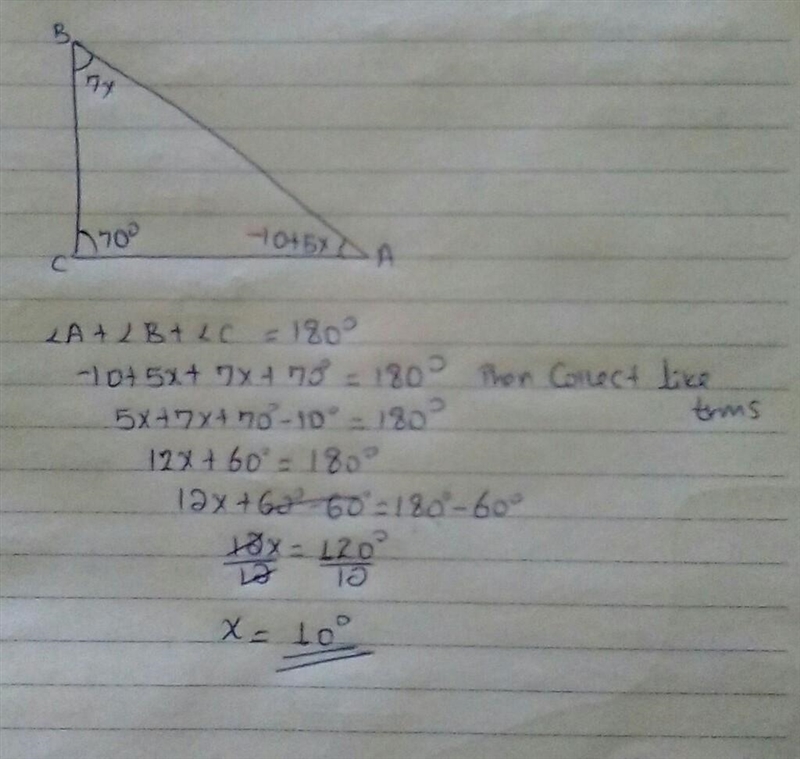 B
7x
C 70° -10+5x A
∠A + ∠B + ∠C = 180°
-10+5x + 7x + 70° = 180° Then Correct like
terms
5x+7x+70°-10° = 180°
12x + 60° = 180°
12x + 60° - 60° = 180° - 60°
12x = 120°
12 12
x = 10°